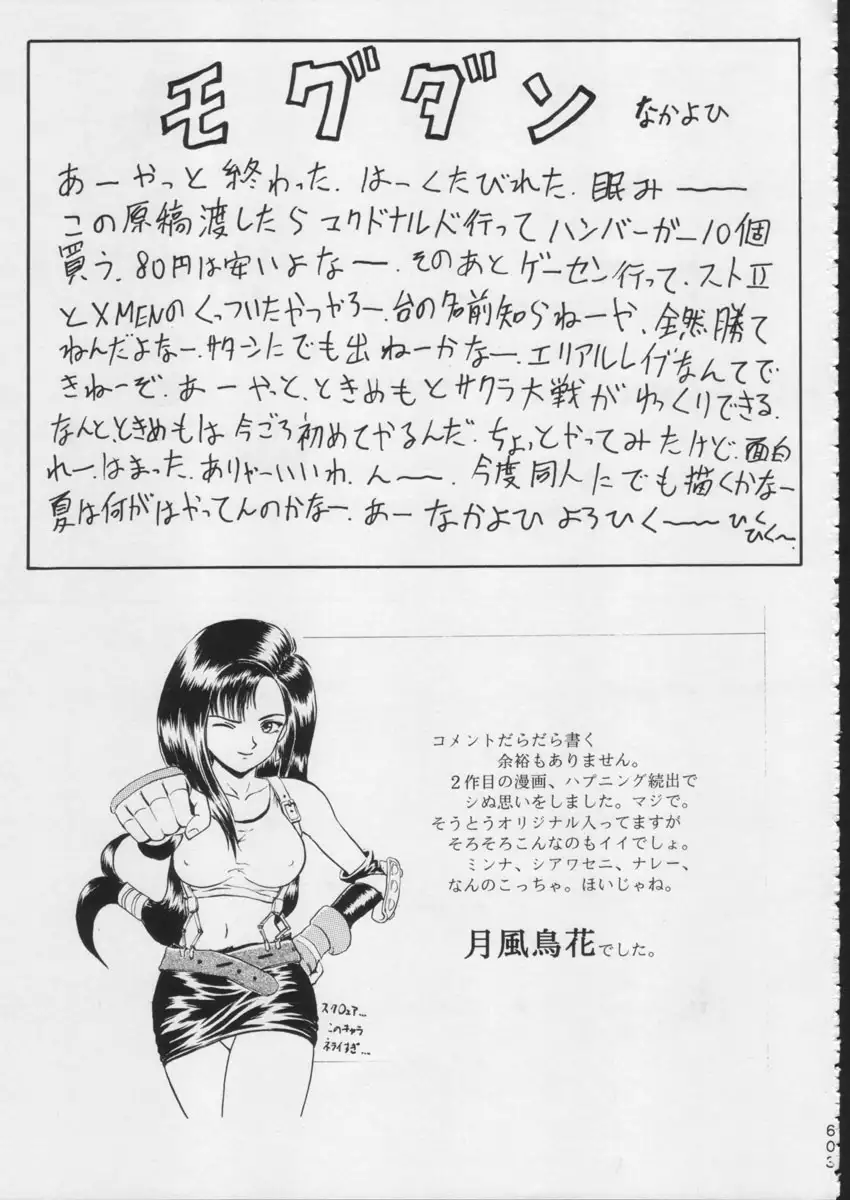 モグダン なかよひ
あーやっと終わった. はーくたびれた. 眠みーー
この原稿渡したらマクドナルド行ってハンバーガー10個
買う. 80円は安いよなー. そのあとゲーセン行って. ストII
とXMENのくっついたやつやろー. 台の名前知らねーや. 全然勝て
ねんだよなー. サターンにでも出ねーかなー. エリアルレイブなんてで
きねーぞ. あーやっと. ときめもとサクラ大戦がゆっくりできる.
なんと、ときめもは今ごろ初めてやるんだ. ちょっとやってみたけど. 面白
れー. はまった. ありゃーいいわ. んー〜. 今度同人にでも描くかなー
夏は何がはやってんのかなー. あーなかよひ よろひく〜〜 ひく
ひく〜.
コメントだらだら書く
余裕もありません。
2作目の漫画、ハプニング続出で
シぬ思いをしました。マジで。
そうとうオリジナル入ってますが
そろそろこんなのもイイでしょ。
ミンナ、シアワセニ、ナレー、
なんのこっちゃ。ほいじゃね。
月風鳥花でした。
スクウェア…
このキャラ
ネライすぎ…
603